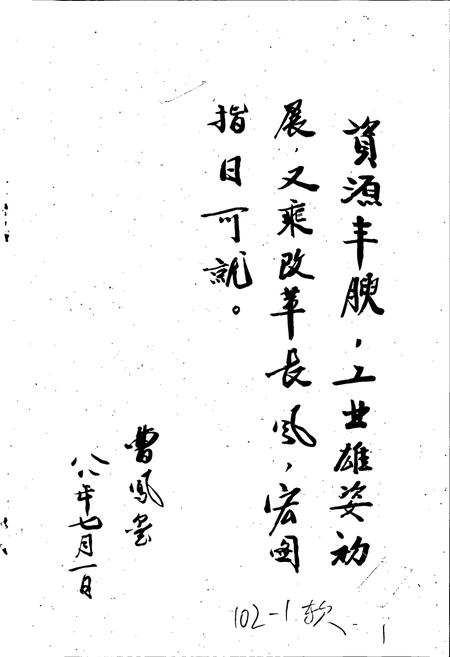 資源丰腴，工业雄姿初
展，又乘改革长风，宏图
指日可就。
曹鳳
八八年七月一日
102-1
1